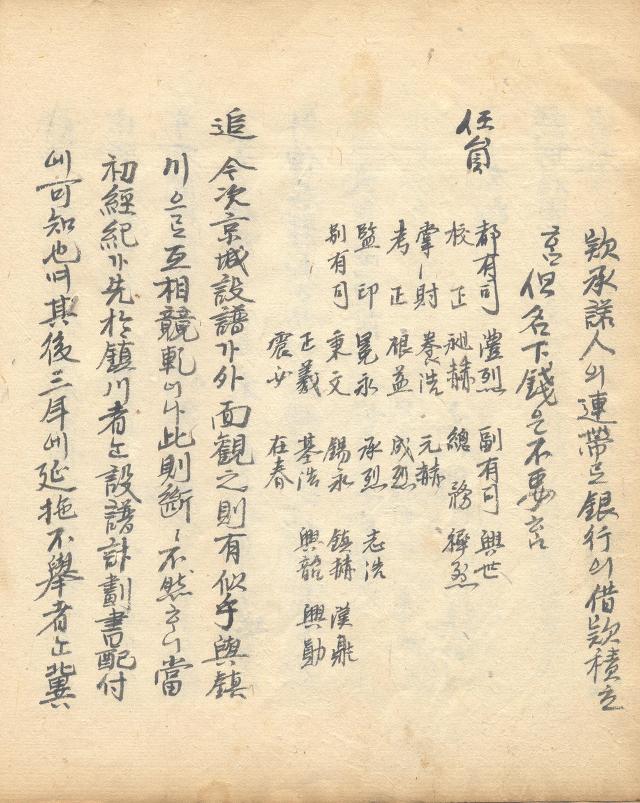 欵承諾人의連帶로銀行의借欵積立
홈但名下錢은不要홈
任員
都有司 澧烈 副有司 興世
校正 祖赫 總務
掌財 養浩 元赫
考正 根益 成烈
監印 冕永 承烈 志浩
別有司 秉文 錫永 鎮赫 漢鼎
正羲 基浩 興韶 興勛
震 在春
追 今次京城設譜가外面觀之則有似乎與鎮
川으로互相競軋이나此則斷〻不然하니當
初經紀가先於鎮川者는設譜計劃書配付
에可知也며其後三年에延拖不擧者는冀